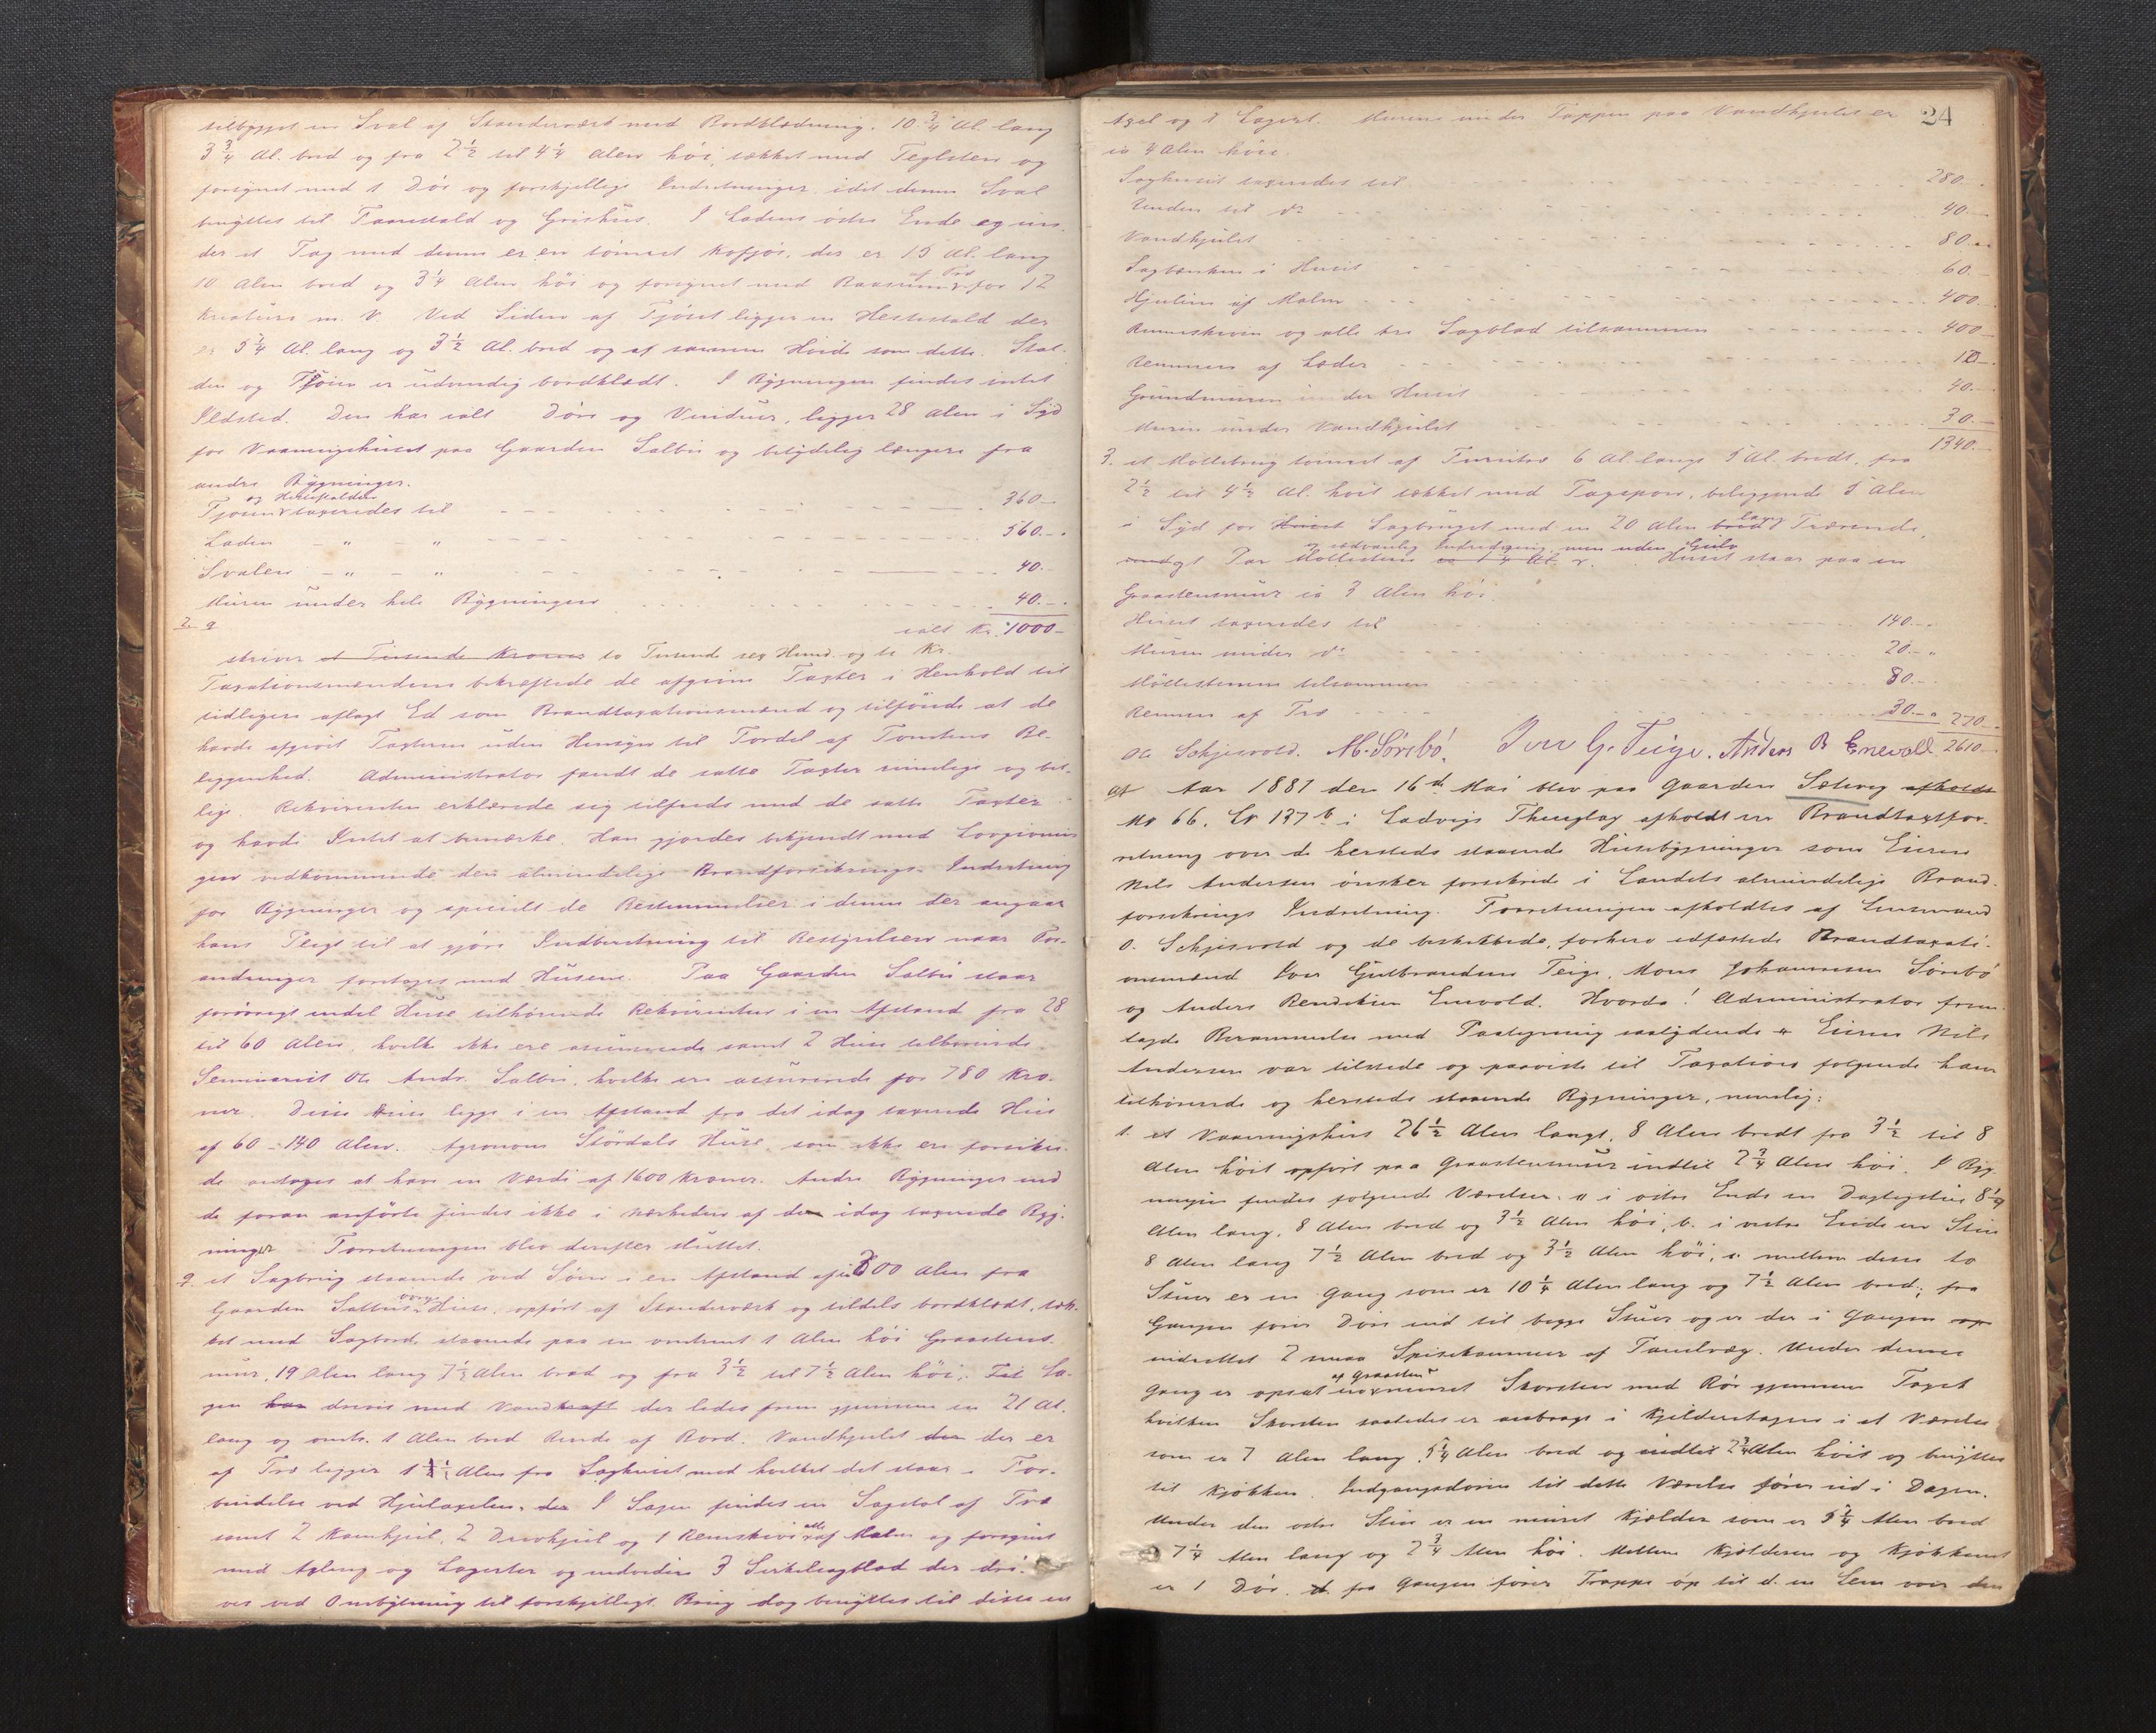 tilbygget en Sval af Standerværk med Bordklædning. 10 3/4 Al. lang
3 3/4 Al. bred og fra 2 1/2 til 4 1/4 Alen höi, tækket med Teglsten og
forsynet med 1 Dör og forskjellige Indretninger idet denne Sval
benyttes til Faarestald og Grisehus. I Ladens östre Ende og un-
der et Tag med denne er en tömret Kofjös, der er 15 Al. lang
10 Alen bred og 3 1/4 Alen höi og forsynet med Baasrum af Træ for 12
Kreaturer m. v. Ved Siden af Fjöset ligger en Hestestald der
er 5 1/4 Al. lang og 3 1/2 Al. bred og af samme Höide som dette. Stal-
den og Fjösen er udvendig bordklædt. I Bygningen findes intet
Ildsted. Den har ialt Döre og Vinduer, ligger 28 Alen i Syd
for Vaaningshuset paa Gaarden Salbu og betydelig længere fra
andre Bygninger.
Fjösen og Hestestalden taxeredes til 360.-
Laden - " - " 560.-
Svalen - " - " 40.-
Muren under hele Bygningen 40.-
2. 9
ialt Kr. 1000-
skriver et Tusende Kroner to Tusende sex Hund. og ti Kr.
Taxationsmændene bekræftede de afgivne Taxter i Henhold til
tidligere aflagt Ed som Brandtaxationsmænd og tilföiede at de
havde afgivet Taxterne uden Hensyn til Fordel af Tomtens Be-
liggenhed. Administrator fandt de satte Taxter rimelige og bil-
lige. Rekvirenten erklærede sig tilfreds med de satte Taxter
og havde Intet at bemærke. Han gjordes bekjendt med Lovgivnin-
gen vedkommende den almindelige Brandforsikrings-Indretning
for Bygninger og specielt de Bestemmelser i denne der angaar
hans Pligt til at gjöre Indberetning til Bestyrelsen naar For-
andringer foretages med Husene. Paa Gaarden Salbu staar
forövrigt endel Huse tilhörende Rekvirenten i en Afstand fra 28
til 60 Alen, hvilke ikke ere assurerede samt 2 Huse tilhörende
Seminarist Ole Andr. Salbu, hvilke ere assurerede for 780 Kro-
ner. Disse Huse ligge i en Afstand fra det idag taxerede Hus
af 60-140 Alen. Agronom Stördals Huse, som ikke ere forsikre-
de antages at have en Værdi af 1600 Kroner. Andre Bygninger end
de foran anförte findes ikke i Nærheden af den idag taxerede Byg-
ninger. Forretningen blev derefter sluttet.
2. et Sagbrug staaende ved Söen i en Afstand af 200 Alen fra
Gaarden Salbus övrige Huse, opfört af Standerværk og tildels bordklædt, tæk-
ket med Sagbord, staaende paa en omtrent 1 Alen höi Graastens-
mur, 19 Alen lang 7 1/2 Alen bred og fra 3 1/2 til 7 1/2 Alen höi. Til Sa-
gen har drives med Vandkraft der ledes frem gjennem en 21 Al.
lang og omtr. 1 Alen bred Rende af Bord. Vandhjulet den der er
af Træ ligger 1 1/2 Alen fra Saghuset med hvilket det staar i For-
bindelse ved Hjulaxelen. der I Sagen findes en Sagstol af Træ
samt 2 Kamhjul, 2 Drevhjul og 1 Remskive alle af Malm og forsynet
med Axling og Lagerter og endvidere 3 Sirkelsagblad der dri-
ves ved Ombytning til forskjelligt Brug dog benyttes til disse en
24
Axel og 1 Lagert. Muren under Tappen paa Vandhjulet er
ca 4 Alen höie.
Saghuset taxeredes til 280.-
Renden til do 40.-
Vandhjulet 80.-
Sagbænken i Huset 60.-
Hjulene af Malm 400.-
Remmeskiven og alle tre Sagblad tilsammen 400-
Remmen af Læder 10-.
Grundmuren under Huset 40.-
Muren under Vandhjulet 30.-
1340.-
3. et Möllebrug tömret af Furutræ 6 Al. langt 5 Al. bredt, fra
2 1/2 til 4 1/2 Al. höit tækket med Tagspon, beliggende 5 Alen
i Syd for Huset Sagbruget med en 20 Alen bred lang Trærende,
Par Möllestene og sædvanlig Indredning, men uden Huset staar paa en
Graastensmur ca 3 Alen höi.
Huset taxeredes til 140.-
Muren under do 20.-
Möllestenene tilsammen 80.-
Rennen af Træ 30.- 270.-
Ole Schjesvold. M. Sörebö. Iver G. Teige. Anders B Enevold 2610.-
Aar 1881 den 16de Mai blev paa Gaarden Sætveg afholdt
No 66. Lr 137 b i Ladvigs Thinglag afholdt en Brandtaxtfor-
retning over de hersteds staaende Husebygninger som Eieren
Nils Andersen önsker forsikrede i Landets almindelige Brand-
forsikrings Indretning. Forretningen afholdtes af Lensmand
O. Schjesvold og de beskikkede, forhen edfæstede Brandtaxati-
onsmænd Iver Gulbrandsen Teige, Mons Johannesen Sörebö
og Anders Bendiksen Enevold. Hvorda! Administrator frem-
lagde Berammelse med Paategning saalydende " Eieren Nils
Andersen var tilstede og paaviste til Taxation fölgende ham
tilhörende og hersteds staaende Bygninger, nemlig:
1. et Vaaningshus 26 1/2 Alen langt, 8 Alen bredt fra 3 1/2 til 8
Alen höit opfört paa Graastensmur indtil 2 3/4 Alen höi. I Byg-
ningen findes fölgende Værelser: a i östre Ende en Dagligstue 8 1/4
Alen lang, 8 Alen bred og 3 1/2 Alen höi, b. i vestre Ende en Stue
8 Alen lang 7 1/2 Alen bred og 3 1/2 Alen höi, c. mellem disse to
Stuer er en Gang som er 10 1/4 Alen lang og 7 1/2 Alen bred; fra
Gangen förer Döre ind til begge Stuer og er der i Gangen op
indrettet 2 smaa Spisekammere af Panelvæg. Under denne
Gang er opsat en af Graasten muret Skorsten med Rör gjennem Taget
hvilken Skorsten saaledes er anbragt i Kjelderetagen i et Værelse
som er 7 Alen lang, 5 1/4 Alen bred og indtil 2 3/4 Alen höit og benyttes
til Kjökken. Indgangsdören til dette Værelse förer ud i Dagen.
Under den östre Stue er en muret Kjælder som er 5 1/4 Alen bred
7 1/4 Alen lang og 2 3/4 Alen höi. Mellem Kjælderen og Kjökkenet
er 1 Dör. d. fra Gangen förer Trappe op til d. en Lem over den